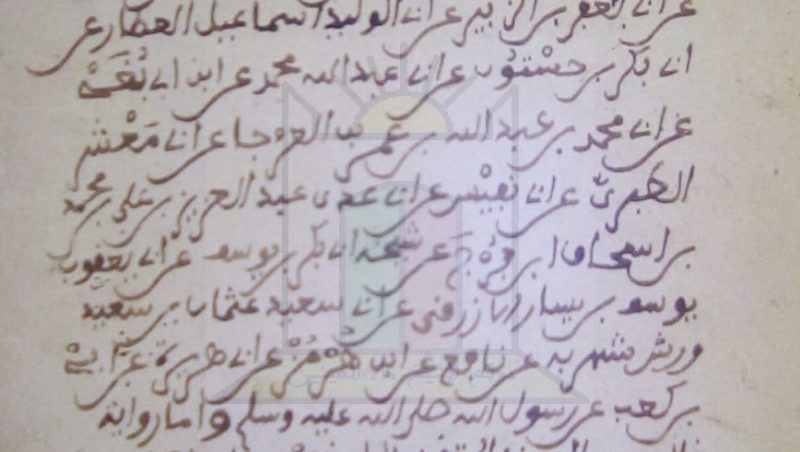 عن ابي جعفر بن الزبير عن ابي الوليد اسماعيل العطار عن
ابي بكر بن حسنون عن ابي عبد الله محمد عن ابن ابي
عن ابي محمد بن عبد الله بن عمر بن العرجا عن ابي مَعْشر
الطبريّ عن ابي نفيْس عن ابي عدى عبد العزيز بن علي بن محمد
بن اسحاق ابن فرَجَ عن شيخه ابي بكر بن يوسف عن ابي يعقوب
يوسف بن يسار الازرق عن ابي سعيد عثمان بن سعيد
ورش بشهر به عن نافع عن ابن هُرْمُزْ عن ابي هريرة عن ابيْ
بن كعب عن رسول الله صلى الله عليه وسلم واما رواية